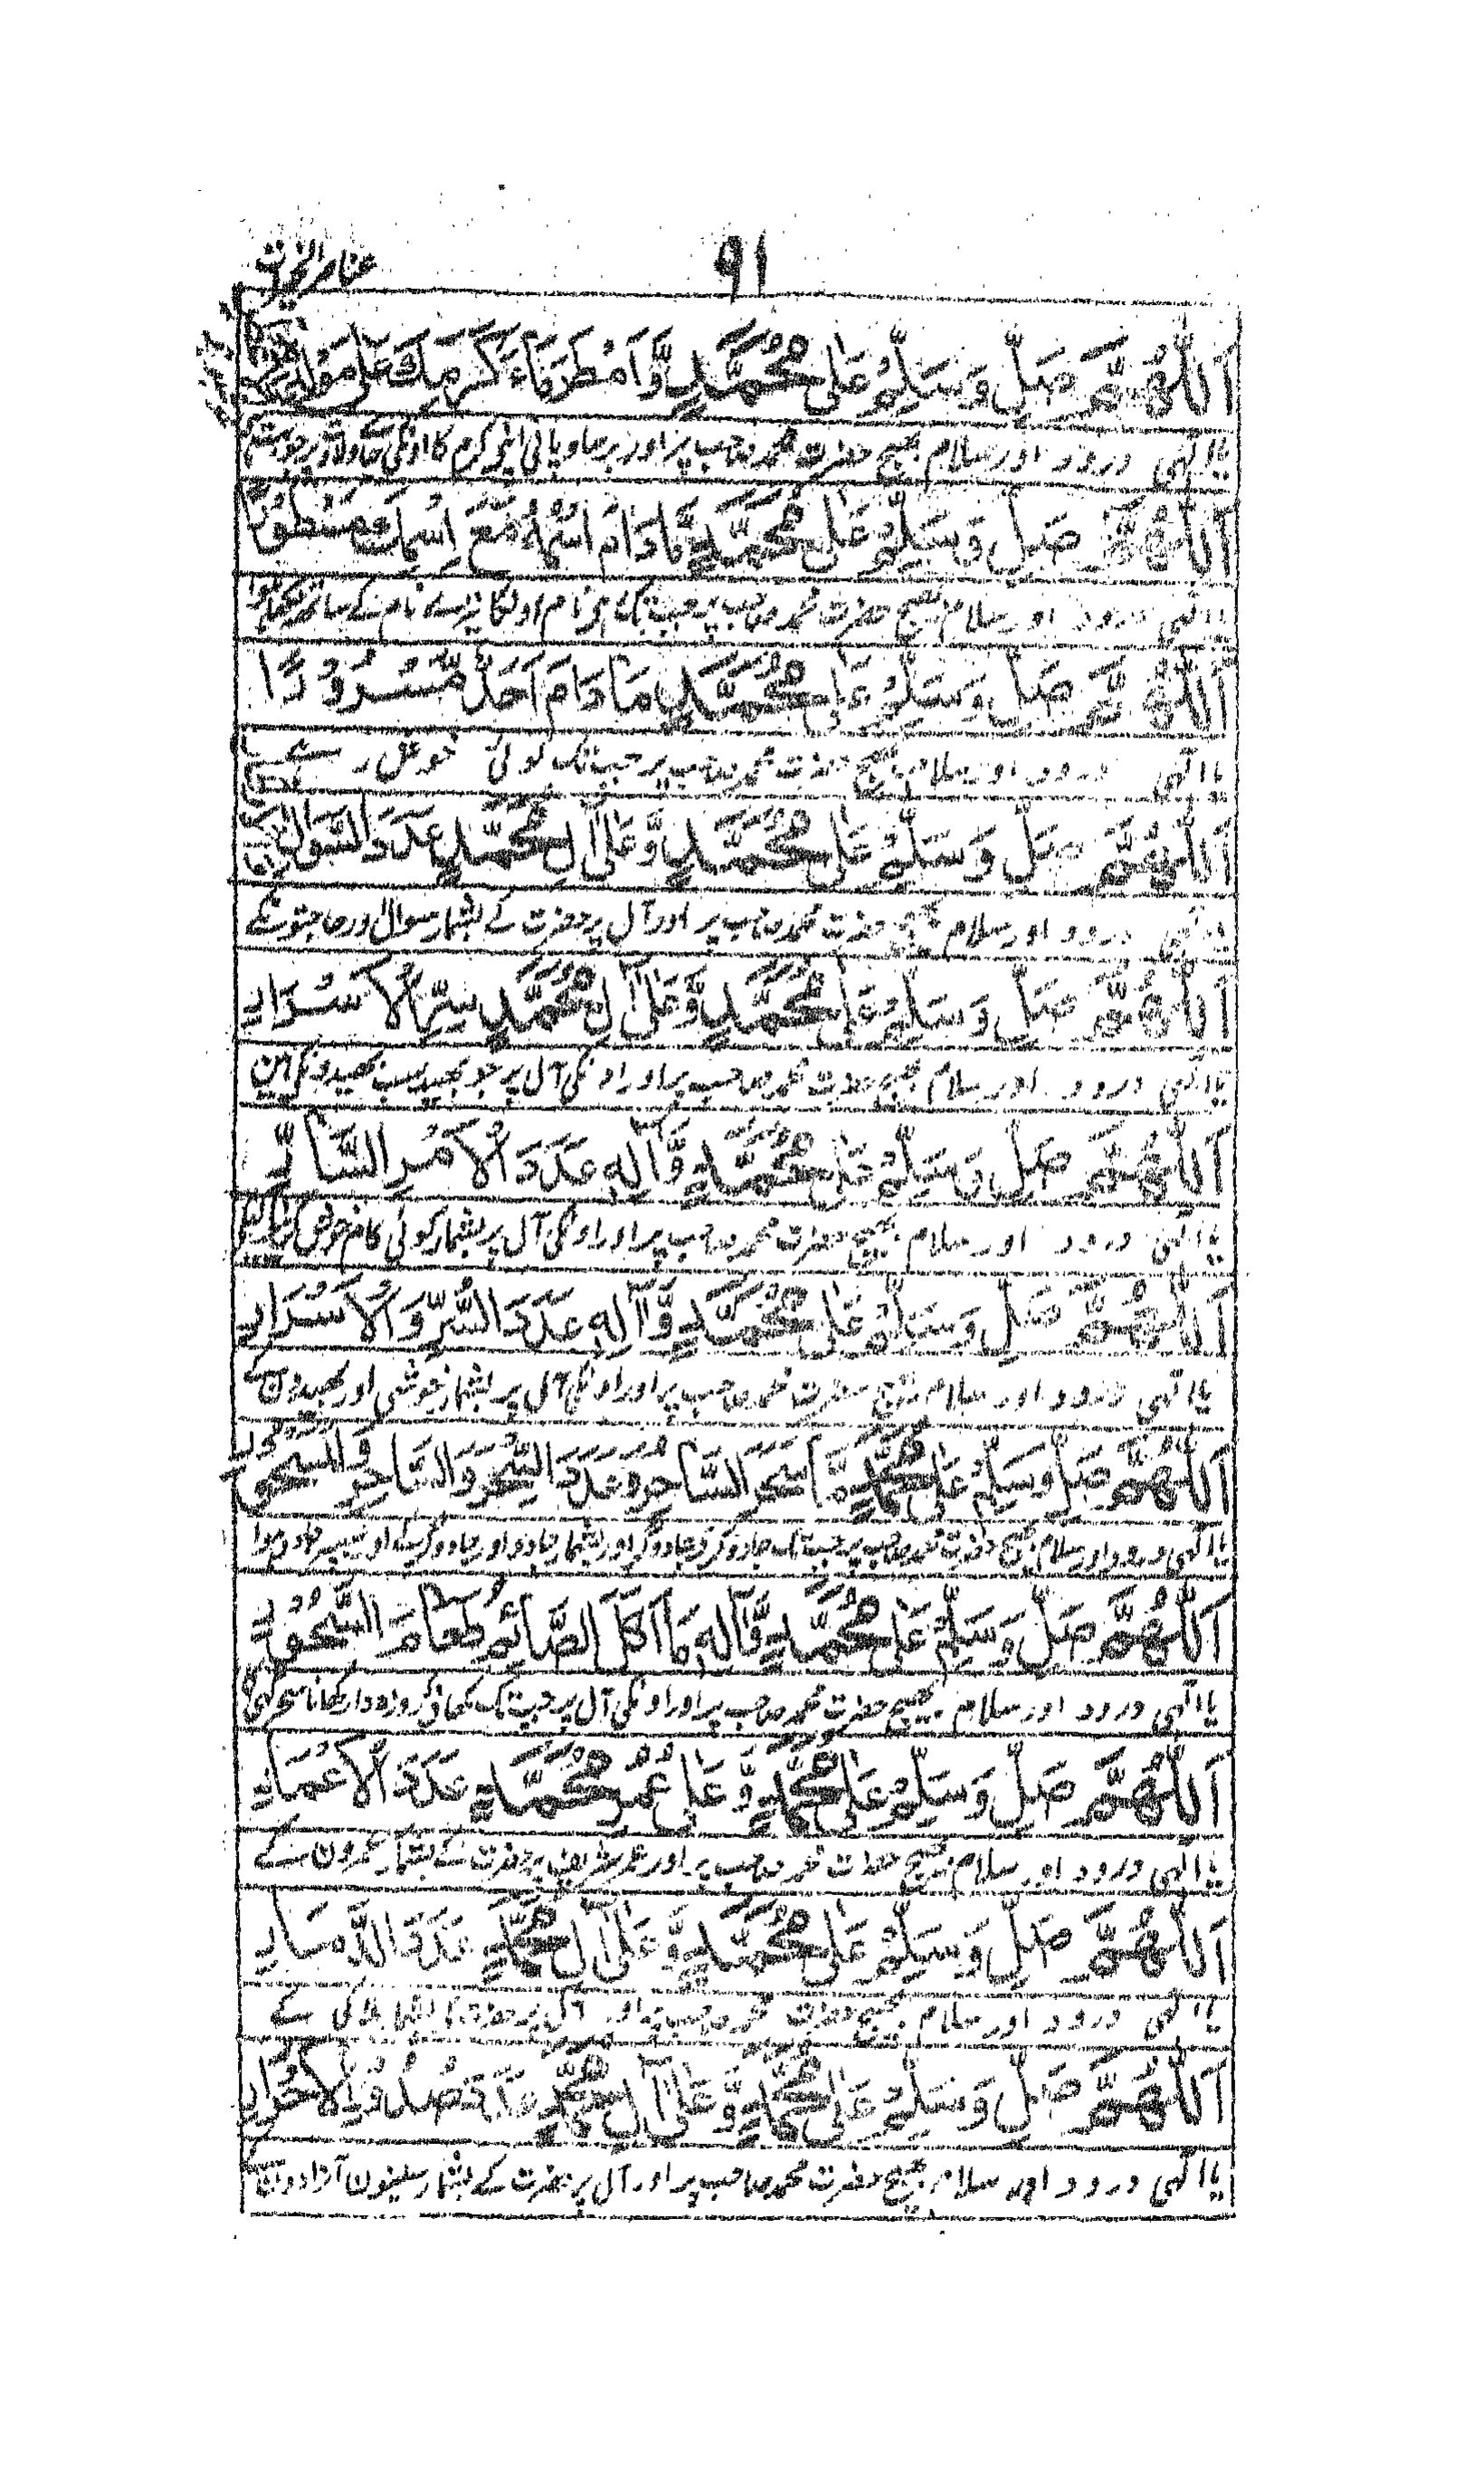 ٩١
عناصر الخیرات
اَللّٰهُمَّ صَلِّ وَسَلِّمْ عَلٰی مُحَمَّدٍ وَّاَمْطِرْ مَاءَ كَرَمِكَ عَلٰی
یا الٰہی درود اور سلام بھیج حضرت محمد صاحب پر اور برساو پانی اپنی کرم کا اونکی
اَللّٰهُمَّ صَلِّ وَسَلِّمْ عَلٰی مُحَمَّدٍ مَّا دَامَ اسْمُهٗ مَعَ اِسْمِكَ
یا الٰہی درود اور سلام بھیج حضرت محمد صاحب پر جب تک ہی نام اونکا تیرے نام کے ساتھ
اَللّٰهُمَّ صَلِّ وَسَلِّمْ عَلٰی مُحَمَّدٍ مَا دَامَ اَحَدٌ مَّسْرُوْرًا
یا الٰہی درود اور سلام بھیج حضرت محمد صاحب پر جب تک کوئی خوش رہے
اَللّٰهُمَّ صَلِّ وَسَلِّمْ عَلٰی مُحَمَّدٍ وَّعَلٰی اٰلِ مُحَمَّدٍ عَدَدَ السُّوَالِ
یا الٰہی درود اور سلام بھیج حضرت محمد صاحب پر اور آل پر حضرت کے بشمار سوال اور حاجتونکے
اَللّٰهُمَّ صَلِّ وَسَلِّمْ عَلٰی مُحَمَّدٍ وَّعَلٰی اٰلِ مُحَمَّدٍ سِرِّ الْاَسْرَارِ
یا الٰہی درود اور سلام بھیج حضرت محمد صاحب پر اور اونکی آل پر جو بھید سب بھیدونکی ہین
اَللّٰهُمَّ صَلِّ وَسَلِّمْ عَلٰی مُحَمَّدٍ وَّاٰلِهٖ عَدَدَ الْاَمْرِ السَّارِّ
یا الٰہی درود اور سلام بھیج حضرت محمد صاحب پر اور اونکی آل پر بشمار کوئی کام خوش
اَللّٰهُمَّ صَلِّ وَسَلِّمْ عَلٰی مُحَمَّدٍ وَّاٰلِهٖ عَدَدَ السُّرِّ وَالْاَسْرَارِ
یا الٰہی درود اور سلام بھیج حضرت محمد صاحب پر اور اونکی آل پر بشمار خوشی اور بھیدون کے
اَللّٰهُمَّ صَلِّ وَسَلِّمْ عَلٰی مُحَمَّدٍ مَّا سَحَرَ السَّاحِرُ وَعَدَدَ السِّحْرِ وَالسَّاحِرِ وَالْمَسْحُوْرِ
یا الٰہی درود اور سلام بھیج حضرت محمد صاحب پر جب تک جادو کرے جادوگر اور بشمار جادو اور جادوگر کے اور جسپر جادو ہوا
اَللّٰهُمَّ صَلِّ وَسَلِّمْ عَلٰی مُحَمَّدٍ وَّاٰلِهٖ مَا اَكَلَ الصَّائِمُ طَعَامَ السُّحُوْرِ
یا الٰہی درود اور سلام بھیج حضرت محمد صاحب پر اور اونکی آل پر جب تک کھاوے روزہ دار کھانا سحر
اَللّٰهُمَّ صَلِّ وَسَلِّمْ عَلٰی مُحَمَّدٍ وَّعَلٰی عُمُرِ مُحَمَّدٍ عَدَدَ الْاَعْمَارِ
یا الٰہی درود اور سلام بھیج حضرت محمد صاحب پر اور عمر شریف پر حضرت کے بشمار عمرون کے
اَللّٰهُمَّ صَلِّ وَسَلِّمْ عَلٰی مُحَمَّدٍ وَّعَلٰی اٰلِ مُحَمَّدٍ عَدَدَ الدَّمَارِ
یا الٰہی درود اور سلام بھیج حضرت محمد صاحب پر اور آل پر حضرت کے بشمار ہلاکی کے
اَللّٰهُمَّ صَلِّ وَسَلِّمْ عَلٰی مُحَمَّدٍ وَّعَلٰی اٰلِ مُحَمَّدٍ عَدَدَ صُدُوْرِ الْاَحْرَارِ
یا الٰہی درود اور سلام بھیج حضرت محمد صاحب پر اور آل پر حضرت کے بشمار سینون آزادونکے